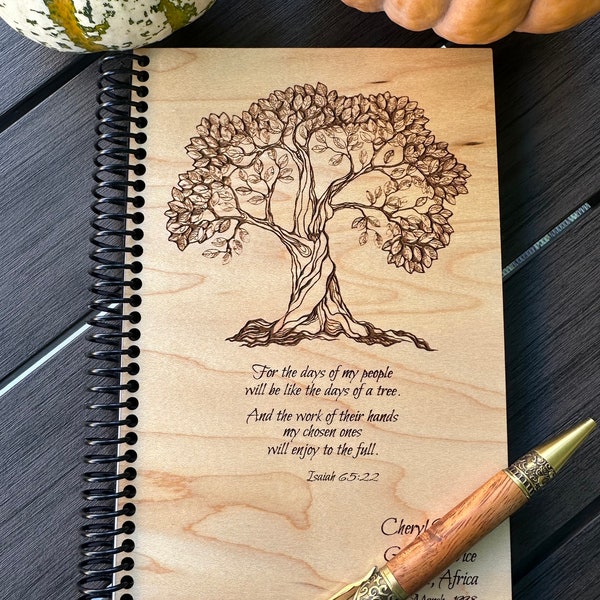 For the days of my people
will be like the days of a tree.
And the work of their hands
my chosen ones
will enjoy to the full.
Isaiah 65:22
Cheryl
Africa
March, 1998